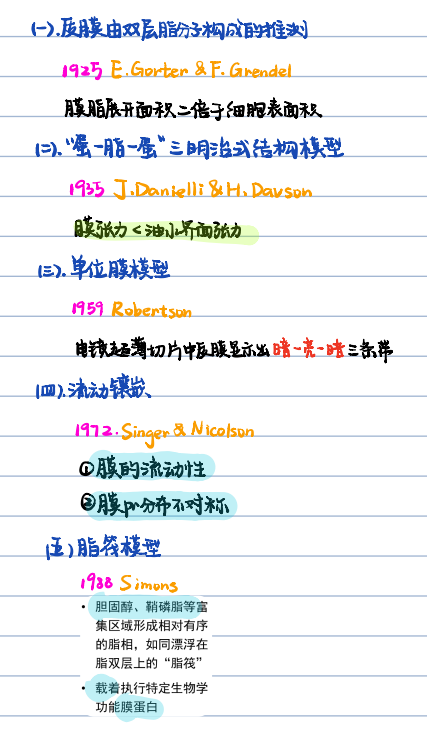 (一).质膜由双层脂分子构成的推测
1925 E.Gorter & F.Grendel
膜脂展开面积二倍于细胞表面积
(二)."蛋-脂-蛋"三明治式结构模型
1935 J.Danielli & H.Davson
膜张力<油水界面张力
(三).单位膜模型
1959 Robertson
电镜超薄切片中质膜显示出暗-亮-暗三条带
(四).流动镶嵌
1972.Singer & Nicolson
①膜的流动性
②膜pr分布不对称
(五)脂筏模型
1988 Simons
• 胆固醇、鞘磷脂等富
集区域形成相对有序
的脂相，如同漂浮在
脂双层上的“脂筏”
• 载着执行特定生物学
功能膜蛋白